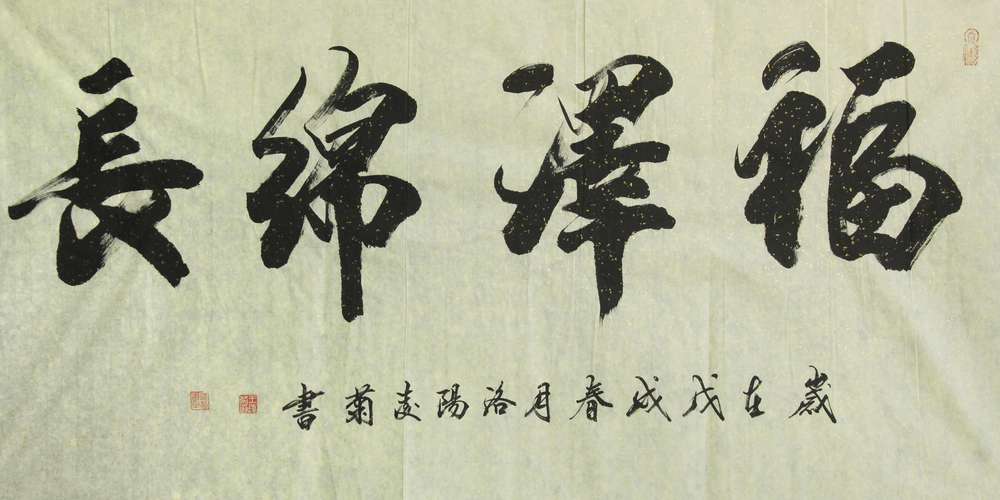 福澤綿長
歲在戊戌春月洛陽友菊書